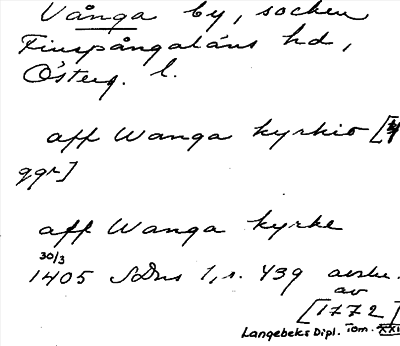 Vånga by, socken
Finspångaläns hd,
Österg. l.
aff Wanga kyrkio [4
ggr]
aff Wanga kyrke
30/3
1405 SDns 1, s. 439 avskr.
av
[1772]
Langebeks Dipl. Tom. XXII